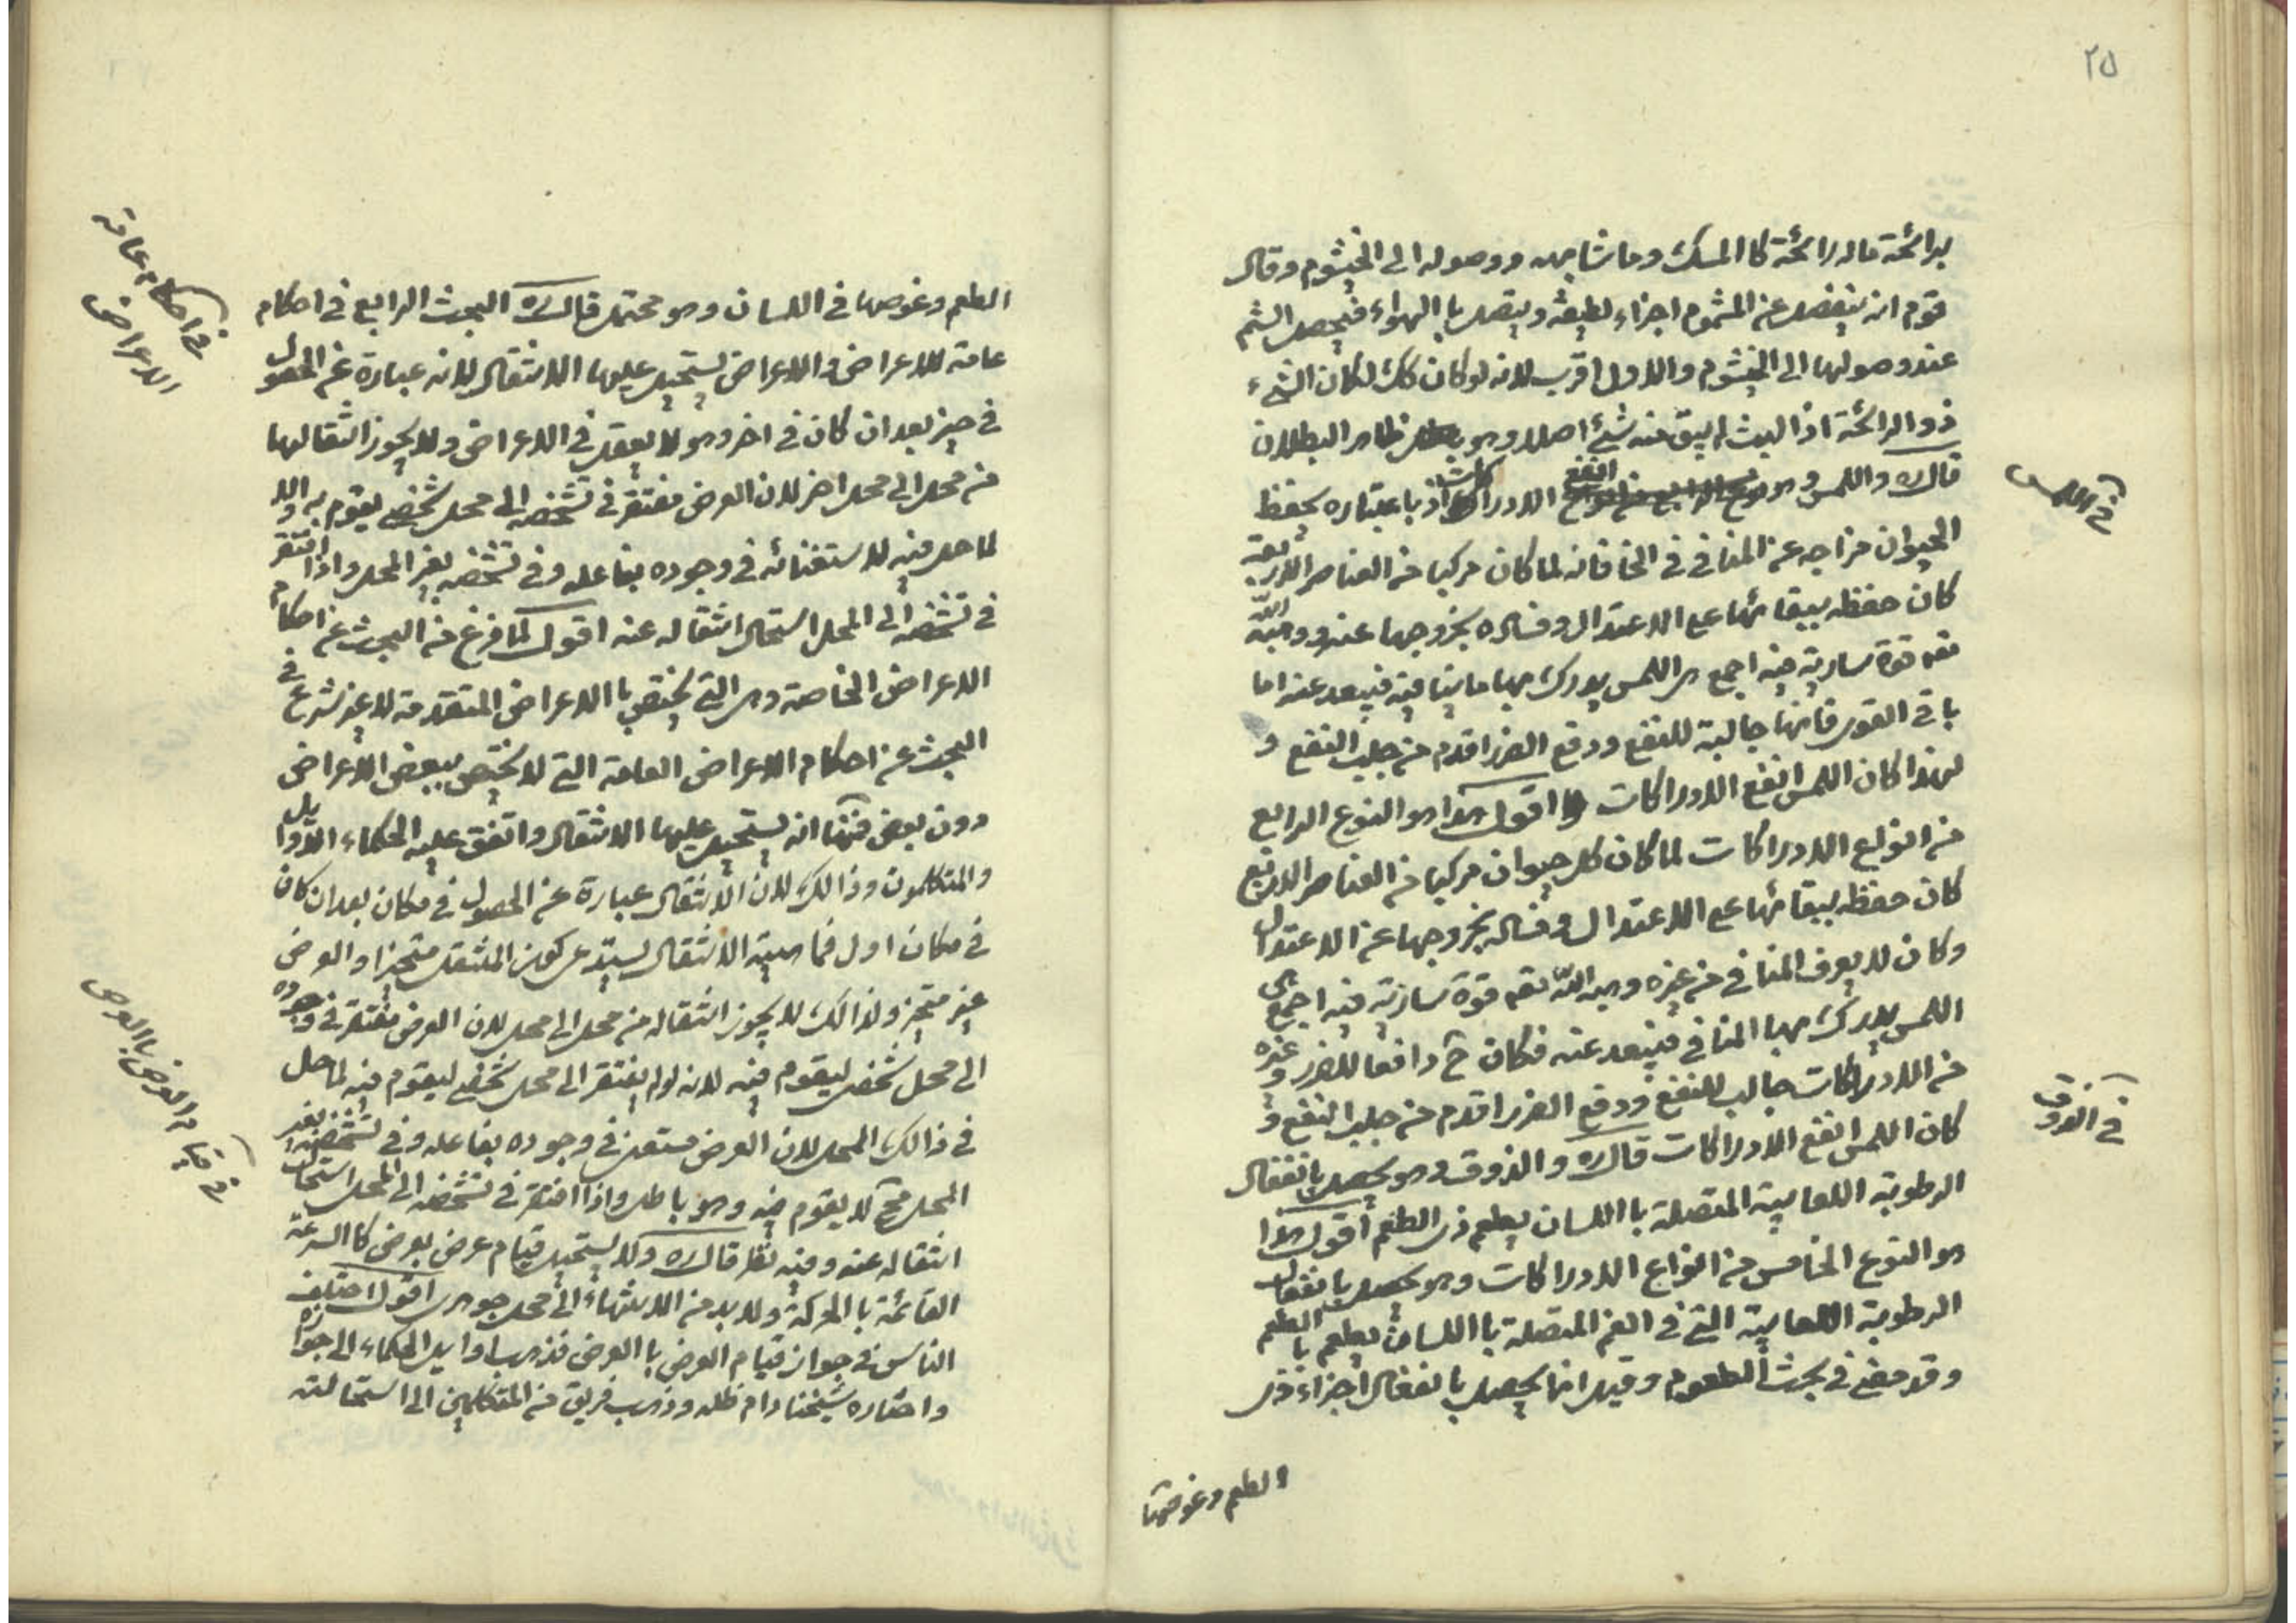 ٢٥
برائحة ماله رائحة كا المسك وما شابهه ووصوله الى الخيشوم وقال
قوم انه ينفصل عن المشموم اجزاء لطيفة ويتصل با الهواء فيحصل الشم
عند وصولها الى الخيشوم والاول اقرب لانه لو كان كك لكان الشيء
ذو الرائحة اذا لبث لم يبق منه شئ اصلا وهو ظاهر البطلان
قال ره واللمس وهو انفع الادراكات اذ باعتباره يحفظ
في اللمس
الحيوان مزاجه عن المنافي في الخا فانه لما كان مركبا من العناصر الاربعة
كان حفظه ببقائها على الاعتدال وفساده بخروجها عنه ووهبه الله
تعه قوة سارية فيه اجمع هى اللمس يدرك بها ما ينافيه فيبعد عنه اما
باقي القوى فانها جالبة للنفع ودفع الضرر اقدم من جلب النفع و
لهذا كان اللمس انفع الادراكات اقول هذا هو النوع الرابع
من انواع الادراكات لما كان كل حيوان مركبا من العناصر الاربع
كان حفظه ببقائها على الاعتدال وفساده بخروجها عن الاعتدال
وكان لا يعرف المنافي من غيره وهبه الله تعه قوة سارية فيه اجمع هى
اللمس يدرك بها المنافي فيبعد عنه فكان ح دافعا للضرر وغيره
من الادراكات جالب للنفع ودفع الضرر اقدم من جلب النفع و
كان اللمس انفع الادراكات قال ره والذوق وهو يحصل بانفعال
في الذوق
الرطوبة اللعابية المتصلة با اللسان بطعم ذى الطعم اقول هذا
هو النوع الخامس من انواع الادراكات وهو يحصل بانفعال
الرطوبة اللعابية التي في الفم المتصلة با اللسان بطعم با الطعم
وقد مضى في بحث الطعوم وقيل انها يحصل بانفعال اجزاء ذى
الطعم وغوصها
الطعم وغوصها في اللسان وهو محتمل قال ره البحث الرابع في احكام
في احكام عامة
الاعراض
عامة للاعراض والاعراض يستحيل عليها الانتقال لانه عبارة عن الحصول
في حيز بعد ان كان في اخر وهو لا يعقل في الاعراض ولا يجوز انتقالها
من محل الى محل اخر لان العرض مفتقر في تشخصه الى محل شخصي يقوم به والا
لما حل فيه لاستغنائه في وجوده بفاعله وفي تشخصه بغير المحل واذا افتقر
في تشخصه الى المحل استحال انتقاله عنه اقول لما فرغ من البحث عن احكام
الاعراض الخاصة وهى التي يختص با الاعراض المتقدمة لا غير شرع في
البحث عن احكام الاعراض العامة التي لا يختص ببعض الاعراض
دون بعض فمنها انه يستحيل عليها الانتقال واتفق عليه الحكماء الاوايل
والمتكلمون وذالك لان الانتقال عبارة عن الحصول في مكان بعد ان كان
في مكان اول فماهية الانتقال يستدعى كون المنتقل متحيزا والعرض
غير متحيز ولذالك لا يجوز انتقاله من محل الى محل لان العرض مفتقر في وجوده
الى محل شخصى ليقوم فيه لانه لو لم يفتقر الى محل شخصي ليقوم فيه لما حل
في ذالك المحل لان العرض مستغن في وجوده بفاعله وفي تشخصه بغير
المحل فح لا يقوم فيه وهو باطل واذا افتقر في تشخصه الى المحل استحال
انتقاله عنه وفيه نظر قال ره ولا يستحيل قيام عرض بعرض كا السرعة
في قيام العرض با العرض
القائمة با الحركة ولابد من الانتهاء الى محل جوهرى اقول اختلف
الناس في جواز قيام العرض با العرض فذهب اوايل الحكماء الى جوازه
واختاره شيخنا دام ظله وذهب فريق من المتكلمين الى استحالته